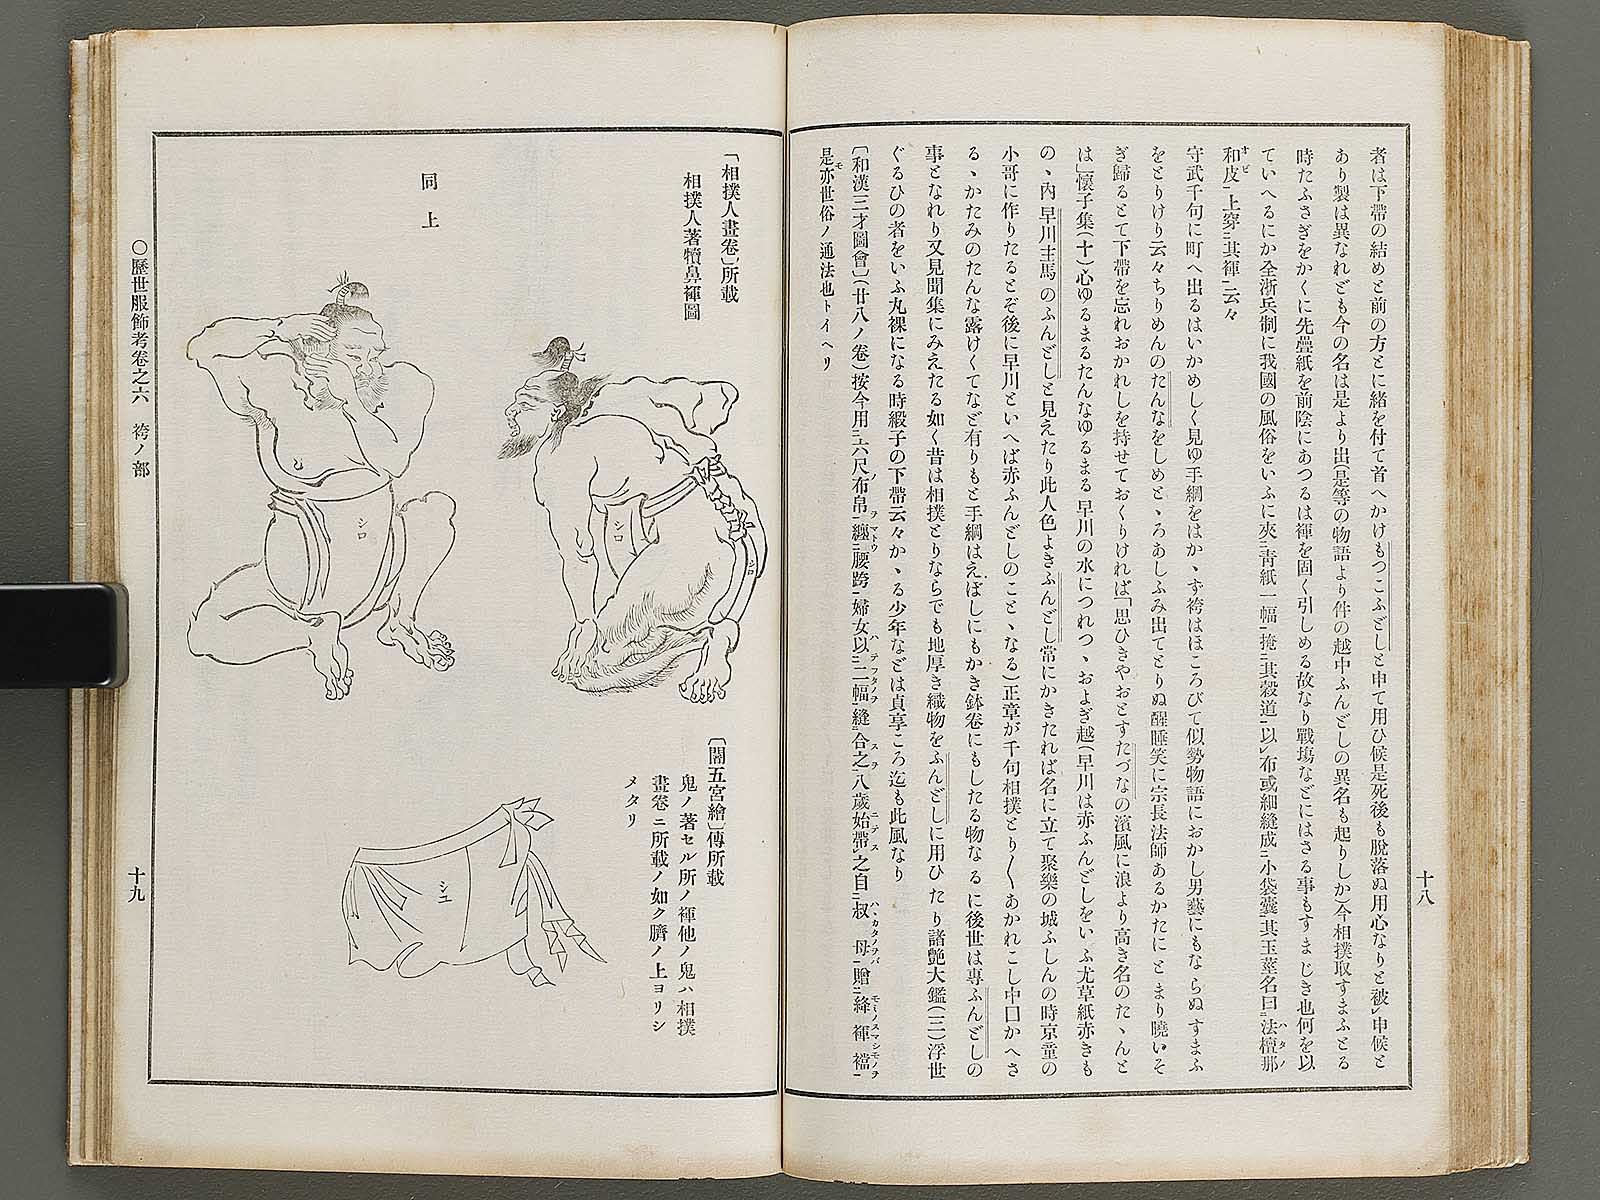 者は下帶の結めと前の方とに緒を付て首へかけもつこふどしと申て用ひ候是死後も脫落ぬ用心なりと被申候と
あり製は異なれども今の名は是より出(是等の物語より件の越中ふんどしの異名も起りしか)今相撲取すまふとる
時たふさぎをかくに先疊紙を前陰にあつるは褌を固く引しめる故なり戰場などにはさる事もすまじき也何を以
ていへるにか全浙兵制に我國の風俗をいふに夾ニ靑紙一幅一掩ニ其穀道一以レ布或細縫成ニ小袋囊一其玉莖名曰ニ法檀那
和皮一上穿ニ其褌一云々
守武千句に町へ出るはいかめしく見ゆ手綱をはかゝず袴はほころびて似勢物語におかし男藝にもならぬすまふ
をとりけり云々ちりめんのたんなをしめとゝろあしふみ出てとりぬ醒睡笑に宗長法師あるかたにとまり曉いそ
ぎ歸るとて下帶を忘れおかれしを持せておくりければ「思ひきやおとすたづなの濱風に浪より高き名のたゝんと
は」懷子集(十)心ゆるまるたんなゆるまる 早川の水につれつゝおよぎ越(早川は赤ふんどしをいふ尤草紙赤きも
のゝ內 早川主馬 のふんどしと見えたり此人色よきふんどし常にかきたれば名に立て聚樂の城ふしんの時京童の
小哥に作りたるとぞ後に早川といへば赤ふんどしのことゝなる)正章が千句相撲とり〳〵あかれこし中口かへさ
るゝかたみのたんな露けくてなど有りもと手綱はえぼしにもかき鉢卷にもしたる物なるに後世は專ふんどしの
事となれり又見聞集にみえたる如く昔は相撲どりならでも地厚き織物をふんどしに用ひたり諸艶大鑑(三)浮世
ぐるひの者をいふ丸裸になる時緞子の下帶云々かゝる少年などは貞享ころ迄も此風なり
〔和漢三才圖會〕(廿八ノ卷)按今用ニ六尺布帛一纏ニ腰跨一婦女以ニ二幅一縫合之八歲始帶レ之自ニ叔母一贈ニ絳褌襠一
是亦世俗ノ通法也トイヘリ
十八
「相撲人畫卷」所載
相撲人著犢鼻褌圖
同上
シロ
シロ
シロ
〔閻五宮繪〕傳所載
鬼ノ著セル所ノ褌他ノ鬼ハ相撲
畫卷ニ所載ノ如ク臍ノ上ヨリシ
メタリ
シユ
〇歷世服飾考卷之六 袴ノ部
十九